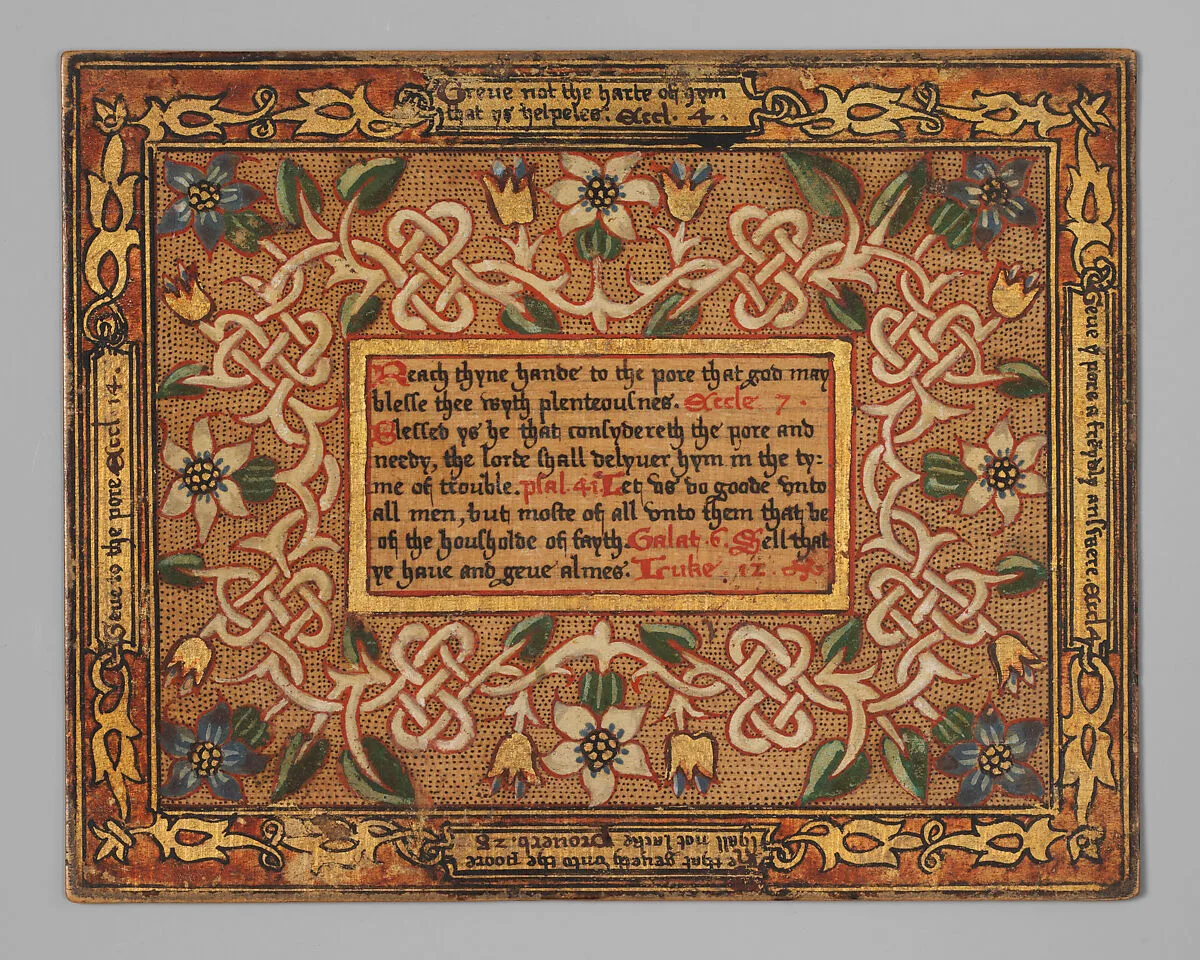 Greue not the harte of hym
that ys helpeles. Eccl. 4.
Reach thyne hande to the pore that god may
blesse thee wyth plenteousnes. Eccle 7.
Blessed ys he that consydereth the pore and
needy, the lorde shall delyuer hym in the ty:
me of trouble. psal. 41. Let vs do goode vnto
all men, but moste of all vnto them that be
of the housholde of fayth. Galat 6. Sell that
ye haue and geue almes. Luke 12.
Geue y pore a frēdly answere. Eccl 4
He that geueth vnto the poore
shall not lacke Prouerb. 28
Geue to the pore. Eccl. 14.